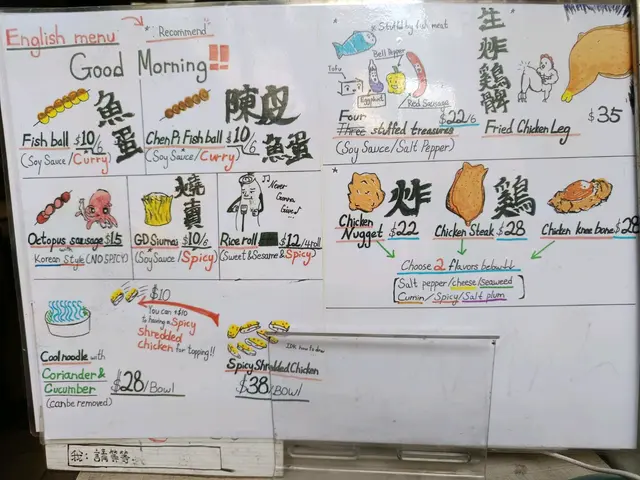 English menu
* "Recommend"
Good Morning!!
Fish ball $10/6
(Soy Sauce/Curry)
魚蛋
Chen Pi Fish ball $10/6
(Soy Sauce/Curry)
陳皮
魚蛋
Octopus sausage $15
Korean Style (NO SPICY)
GD Siumai $10/6
(Soy Sauce/Spicy)
燒賣
Rice roll $12/4roll
(Sweet & Sesame & Spicy)
Never
Gonna
Give
Cool noodle with
Coriander &
Cucumber
(can be removed)
$28/Bowl
$10
You can +$10
to having a Spicy
Shredded
Chicken for topping!!
Spicy Shredded Chicken
$38/Bowl
IDK how to draw
* Stuffed by fish meat
Tofu
Eggplant
Bell Pepper
Red Sausage
Four
Three stuffed treasures
$22/6
(Soy Sauce/Salt Pepper)
生炸鷄髀
Fried Chicken Leg
$35
Chicken
Nugget $22
炸
Chicken Steak $28
鷄
Chicken knee bone $28
Choose 2 flavors below
Salt pepper/cheese/Seaweed
Cumin/Spicy/Salt plum
我:請等等